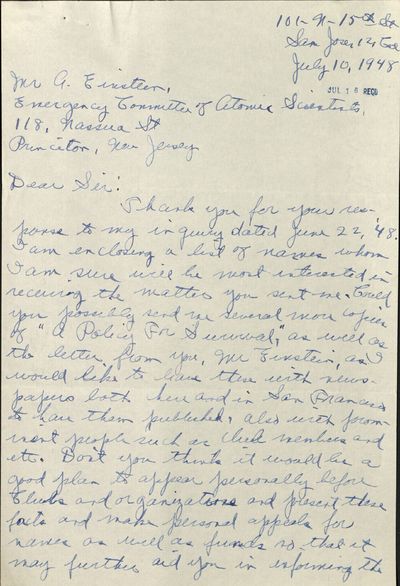 101-N-15th St
San Jose, 12, Cal
July 10, 1948
JUL 16 REC'D
Mr A. Einstein,
Emergency Committee of Atomic Scientists,
118, Nassua St
Princeton, New Jersey
Dear Sir:
Thank you for your res-
ponse to my inquiry dated June 22, '48.
I am enclosing a list of names whom
I am sure will be most interested in
receiving the matter you sent me. Could
you possibly send me several more copies
of "A Policy For Survival," as well as
the letter from you, Mr Einstein, as I
would like to leave these with news-
papers both here and in San Francisco
to have them published, also with prom-
inent people such as Club members and
etc. Don't you think it would be a
good plan to appear personally before
Clubs and organizations and present these
facts and make personal appeals for
names as well as funds so that it
may further aid you in informing the